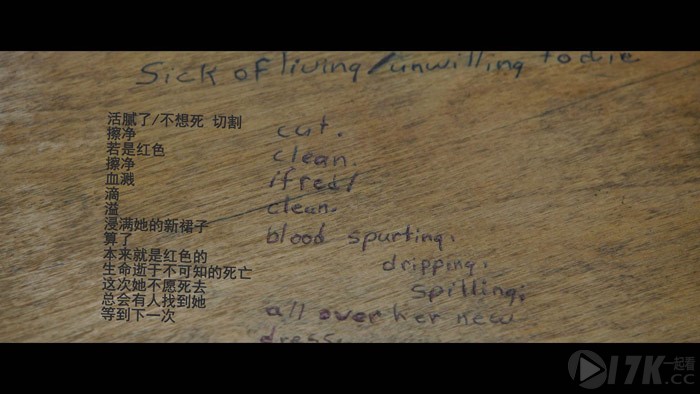 Sick of living/unwilling to die
活腻了/不想死 切割
擦净
若是红色
擦净
血溅
滴
溢
浸满她的新裙子
算了
本来就是红色的
生命逝于不可知的死亡
这次她不愿死去
总会有人找到她
等到下一次
cut.
clean.
if red/
clean.
blood spurting.
dripping.
spilling;
all over her new
dress.
17K.cc
一起看